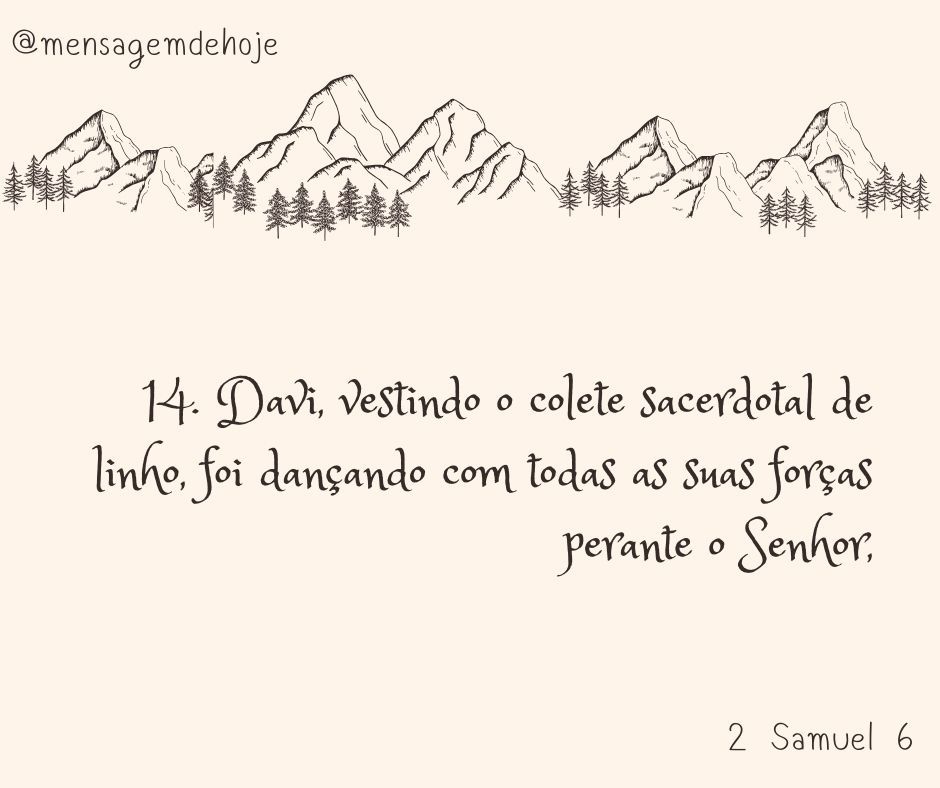 @mensagemdehoje
14. Davi, vestindo o colete sacerdotal de
linho, foi dançando com todas as suas forças
perante o Senhor,
2 Samuel 6